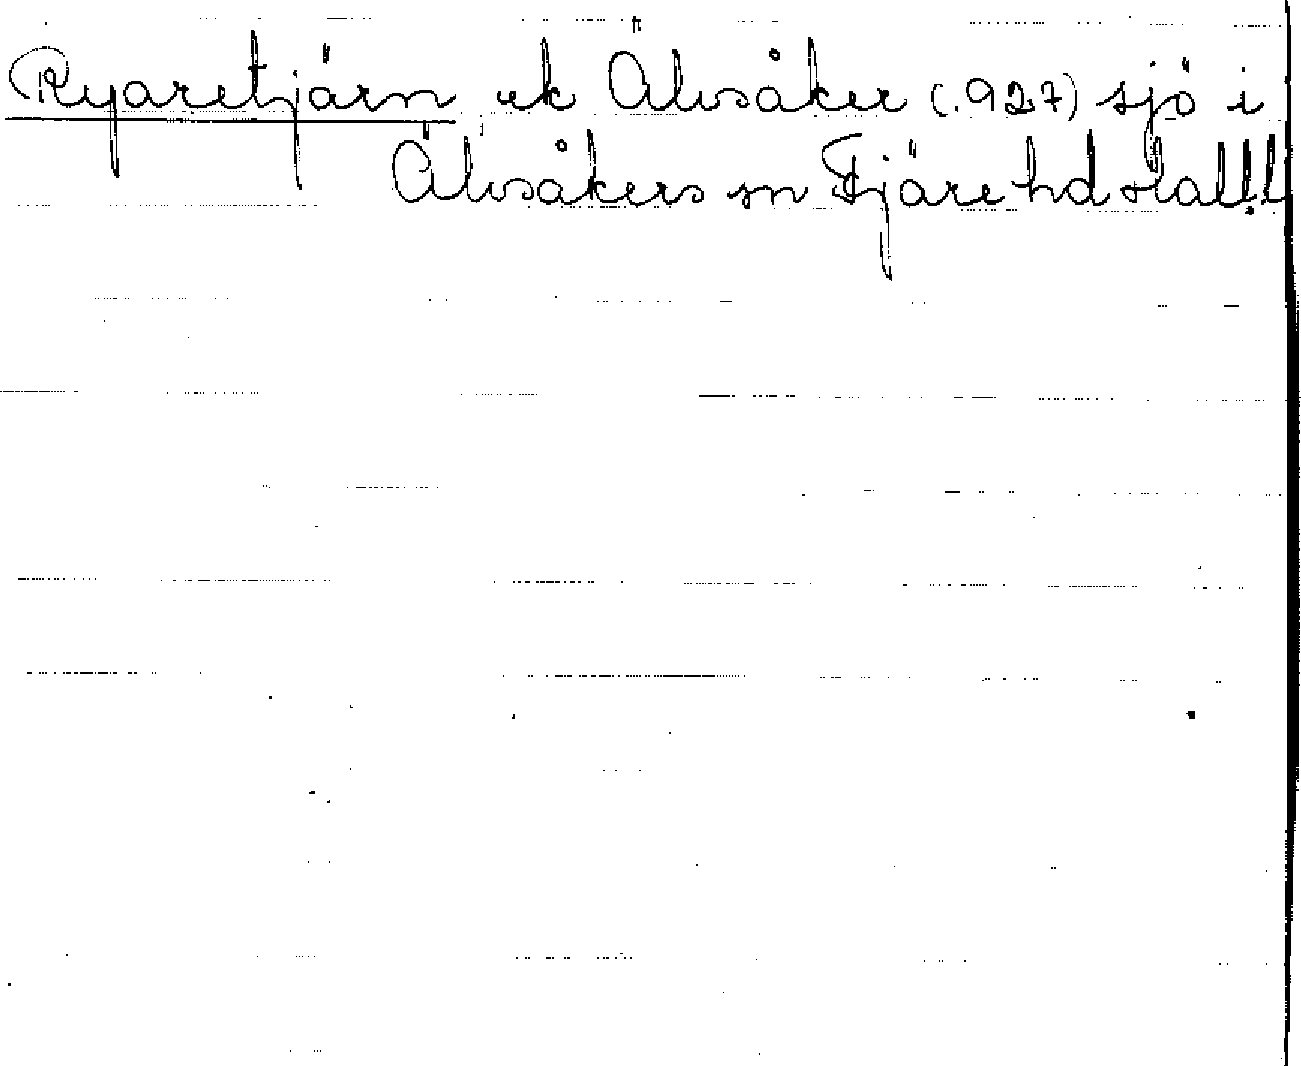 Ryaretjärn ek Älvsåker (.927) sjö i
Älvsåkers sn Fjäre hd Hall